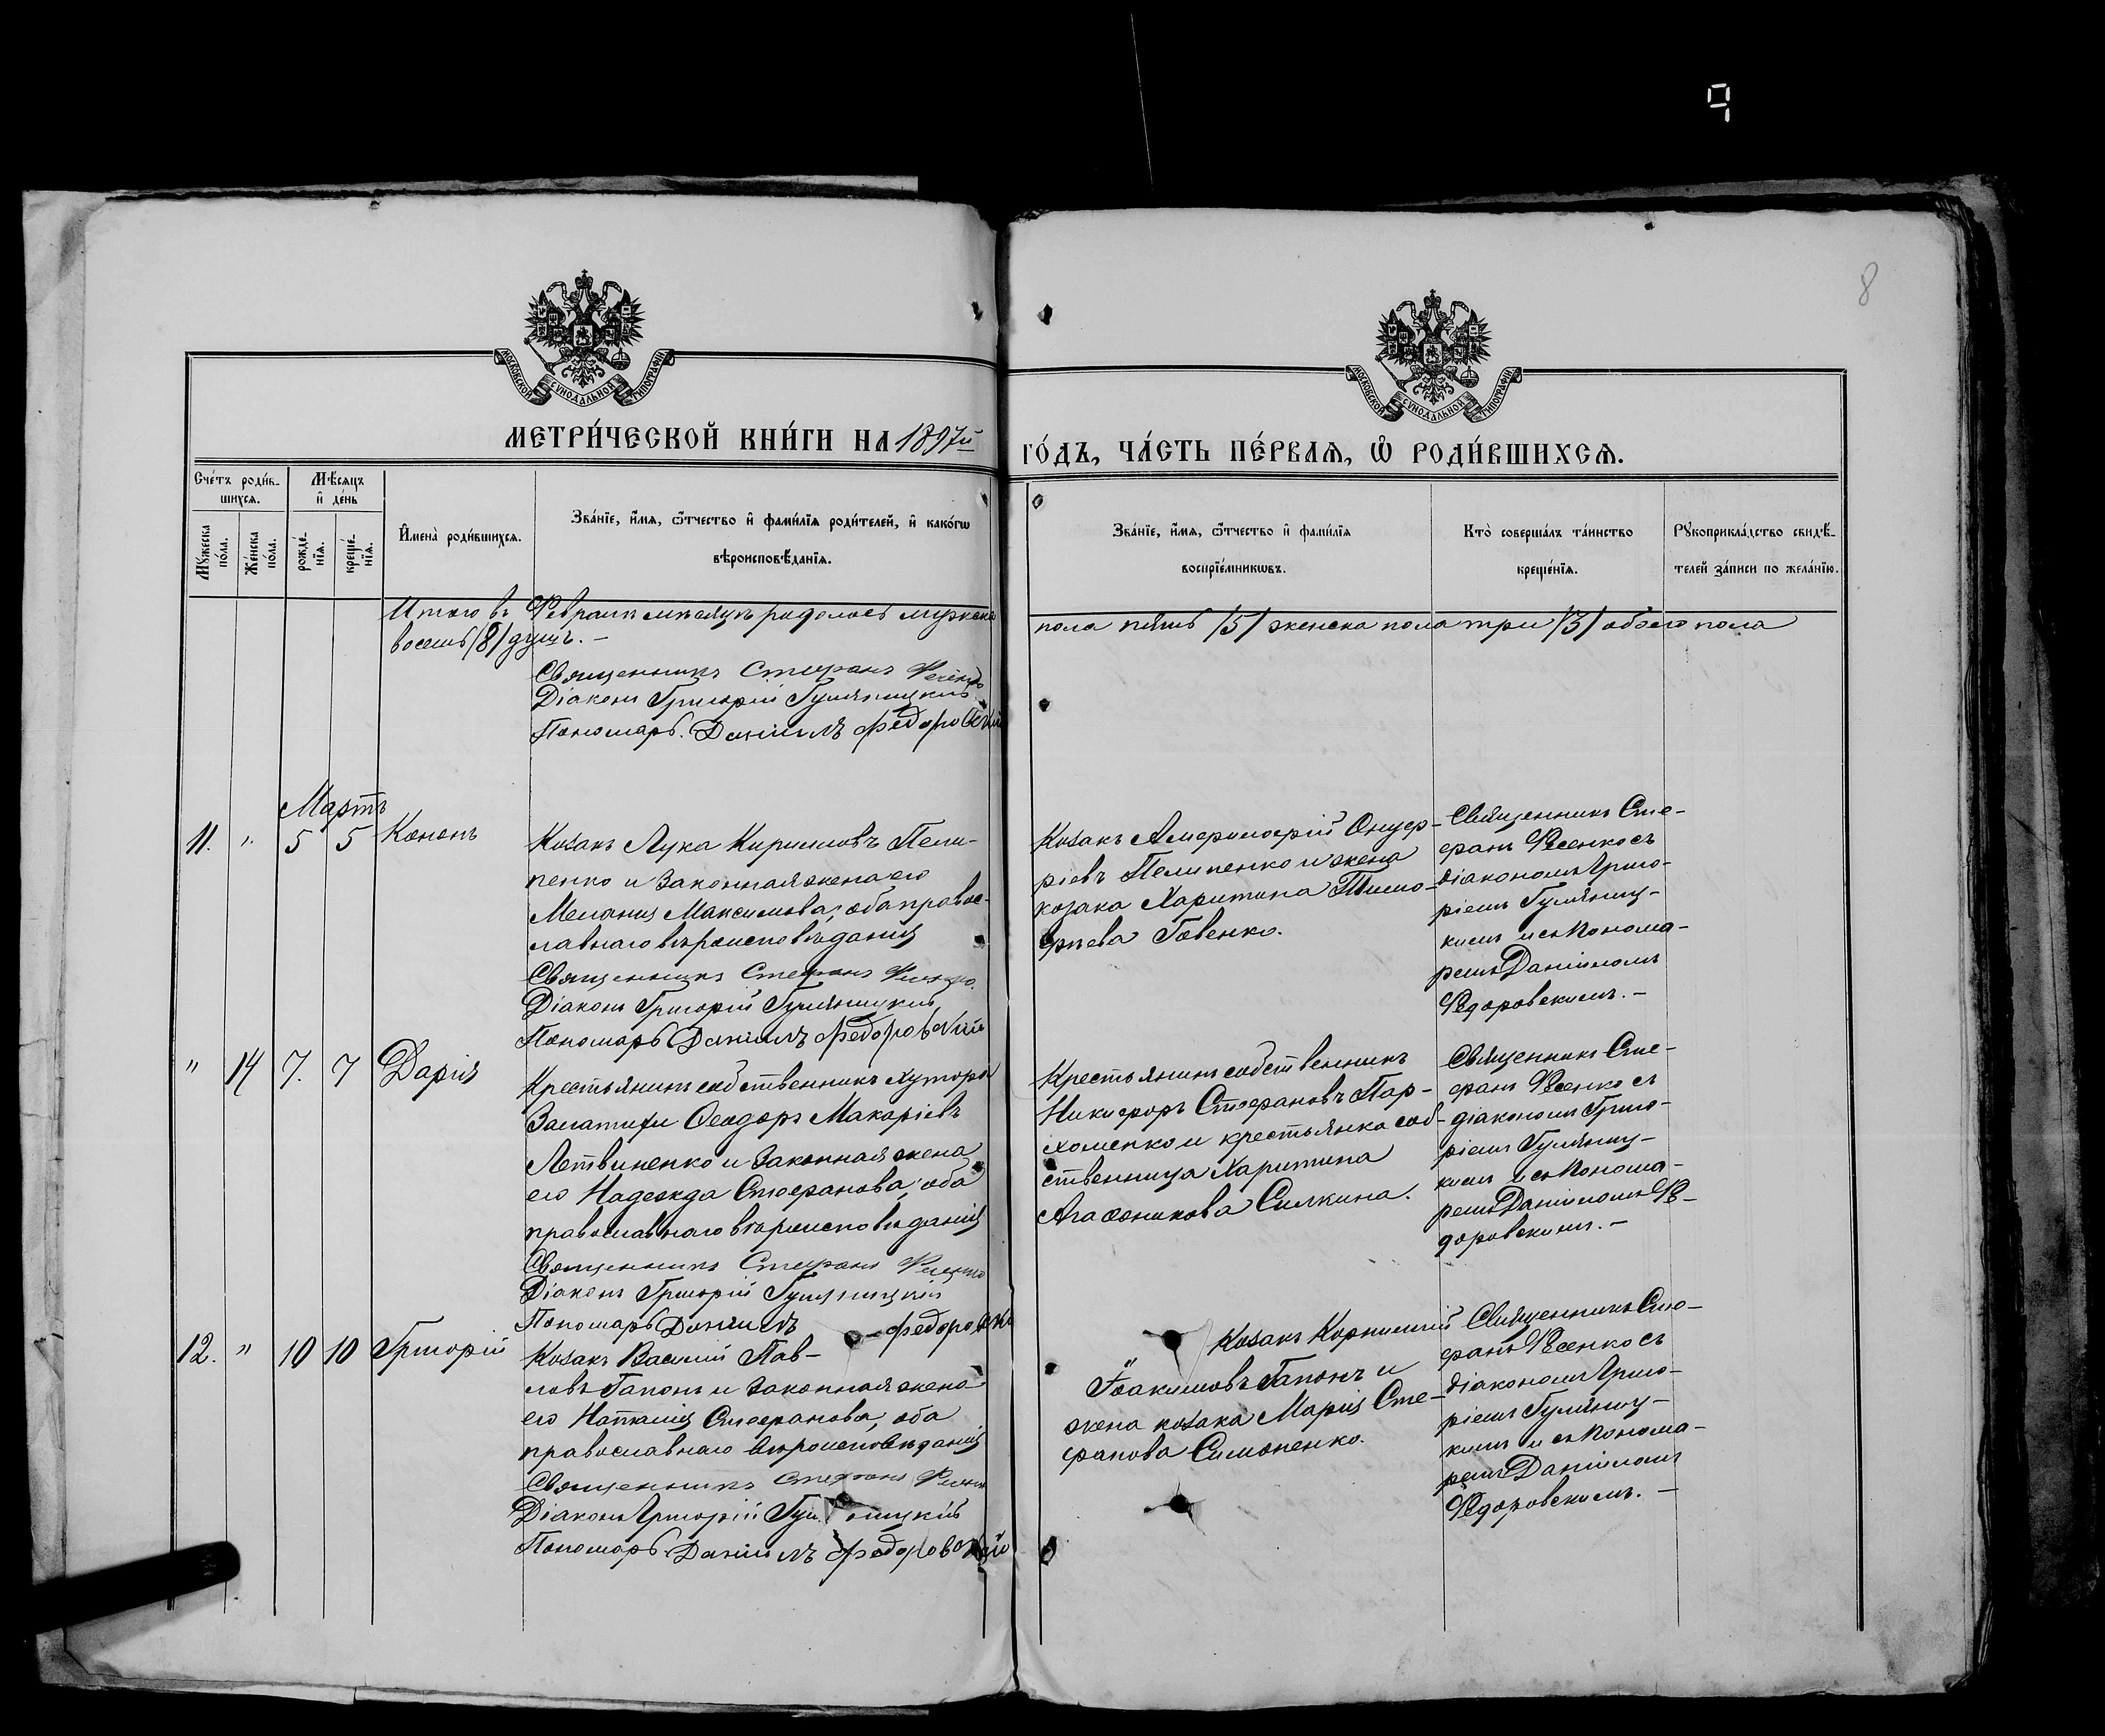 9
8
МОСКОВСКОЙ СѴНОДАЛЬНОЙ ТИПОГРАФІИ
МОСКОВСКОЙ СѴНОДАЛЬНОЙ ТИПОГРАФІИ
МЕТРИ́ЧЕСКОЙ КНИ́ГИ НА 1897й
ГО́ДЪ, ЧА́СТЬ ПЕ́РВАѦ, Ѡ҆ РОДИ́ВШИХСѦ.
Сче́тъ роди́в-
шихсѧ.
Мѣ́сѧцъ
и҆ де́нь
Мꙋ́жеска
по́ла.
Же́нска
по́ла.
рожде́-
нїѧ.
креще́-
нїѧ.
И҆мена̀ роди́вшихсѧ.
Зва́нїе, и҆́мѧ, ѻ҆́тчество и҆ фами́лїѧ роди́телей, и҆ како́гѡ
вѣроисповѣ́данїѧ.
Зва́нїе, и҆́мѧ, ѻ҆́тчество и҆ фами́лїѧ
воспрїе́мникѡвъ.
Кто̀ соверша́лъ та́инство
креще́нїѧ.
Рꙋкоприкла́дство свидѣ́-
телей за́писи по жела́нїю.
Итого въ Февралѣ мѣсяцѣ родилось мужеска
пола пять /5/ женска пола три /3/ обоего пола
восемь /8/ душъ. –
Священникъ Стефанъ Фесенко
Діаконъ Григорій Гуляницкій
Пономарь Даніилъ Федоровскій
Мартъ
11. " 5 5 Кононъ
Козакъ Лука Кирилловъ Пели-
пенко и законная жена его
Меланія Максимова, оба правос-
лавнаго вѣроисповѣданія
Священникъ Стефанъ Фесенко
Діаконъ Григорій Гуляницкій
Пономарь Даніилъ Федоровскій
Козакъ Онуф-
ріевъ Пелипенко и жена
козака Харитина Тимо-
феева Говенко.
Священникъ Сте-
фанъ Фесенко съ
діакономъ Григо-
ріемъ Гуляниц-
кимъ и съ Понома-
ремъ Даніиломъ
Федоровскимъ. –
" 14 7. 7 Дарія
Крестьянинъ собственникъ хутора
Ѳеодоръ Макаріевъ
Литвиненко и законная жена
его Надежда Стефанова, оба
православнаго вѣроисповѣданія
Священникъ Стефанъ Фесенко
Діаконъ Григорій Гуляницкій
Пономарь Даніилъ Федоровскій
Крестьянинъ собственникъ
Никифоръ Стефановъ Пар-
хоменко и крестьянка соб-
ственница Харитина
Агаѳоникова Силкина.
Священникъ Сте-
фанъ Фесенко съ
діакономъ Григо-
ріемъ Гуляниц-
кимъ и съ Понома-
ремъ Даніиломъ Фе-
доровскимъ. –
12. " 10 10 Григорій
Козакъ Василій Пав-
ловъ Гапонъ и законная жена
его Наталія Стефанова, оба
православнаго вѣроисповѣданія
Священникъ Стефанъ Фесенко
Діаконъ Григорій Гуляницкій
Пономарь Даніилъ Федоровскій
Козакъ Корнилій
Іоакимовъ Гапонъ и
жена козака Марія Сте-
фанова Симоненко.
Священникъ Сте-
фанъ Фесенко съ
діакономъ Григо-
ріемъ Гуляниц-
кимъ и съ Понома-
ремъ Даніиломъ
Федоровскимъ. –